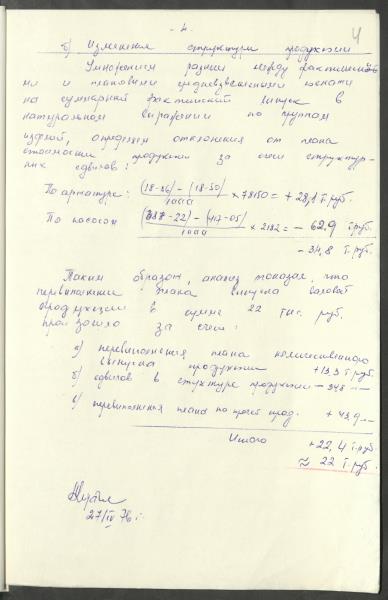 - 4 -
4
б) Изменения структуры продукции
Умножением разницы между фактически-
ми и плановыми средневзвешенными ценами
на суммарный фактический выпуск в
натуральном выражении по группам
изделий, определяем отклонения от плана
стоимости продукции за счет структур-
ных сдвигов:
По арматуре: (18-86) - (18-50) / 1000 × 78150 = + 28,1 т.руб.
По насосам (-22) - (417-05) / 1000 × 2182 = - 62,9 т.руб.
- 34,8 т.руб.
Таким образом, анализ показал, что
перевыполнение плана выпуска валовой
продукции в сумме 22 тыс. руб.
произошло за счет:
а) перевыполнения плана количественного
выпуска продукции + 13,3 т.руб.
б) сдвигов в структуре продукции - 34,8 -"-
в) перевыполнения плана по прочей прод. + 43,9 -"-
Итого + 22,4 т.руб.
≈ 22 т.руб.
27/IV 76 г.